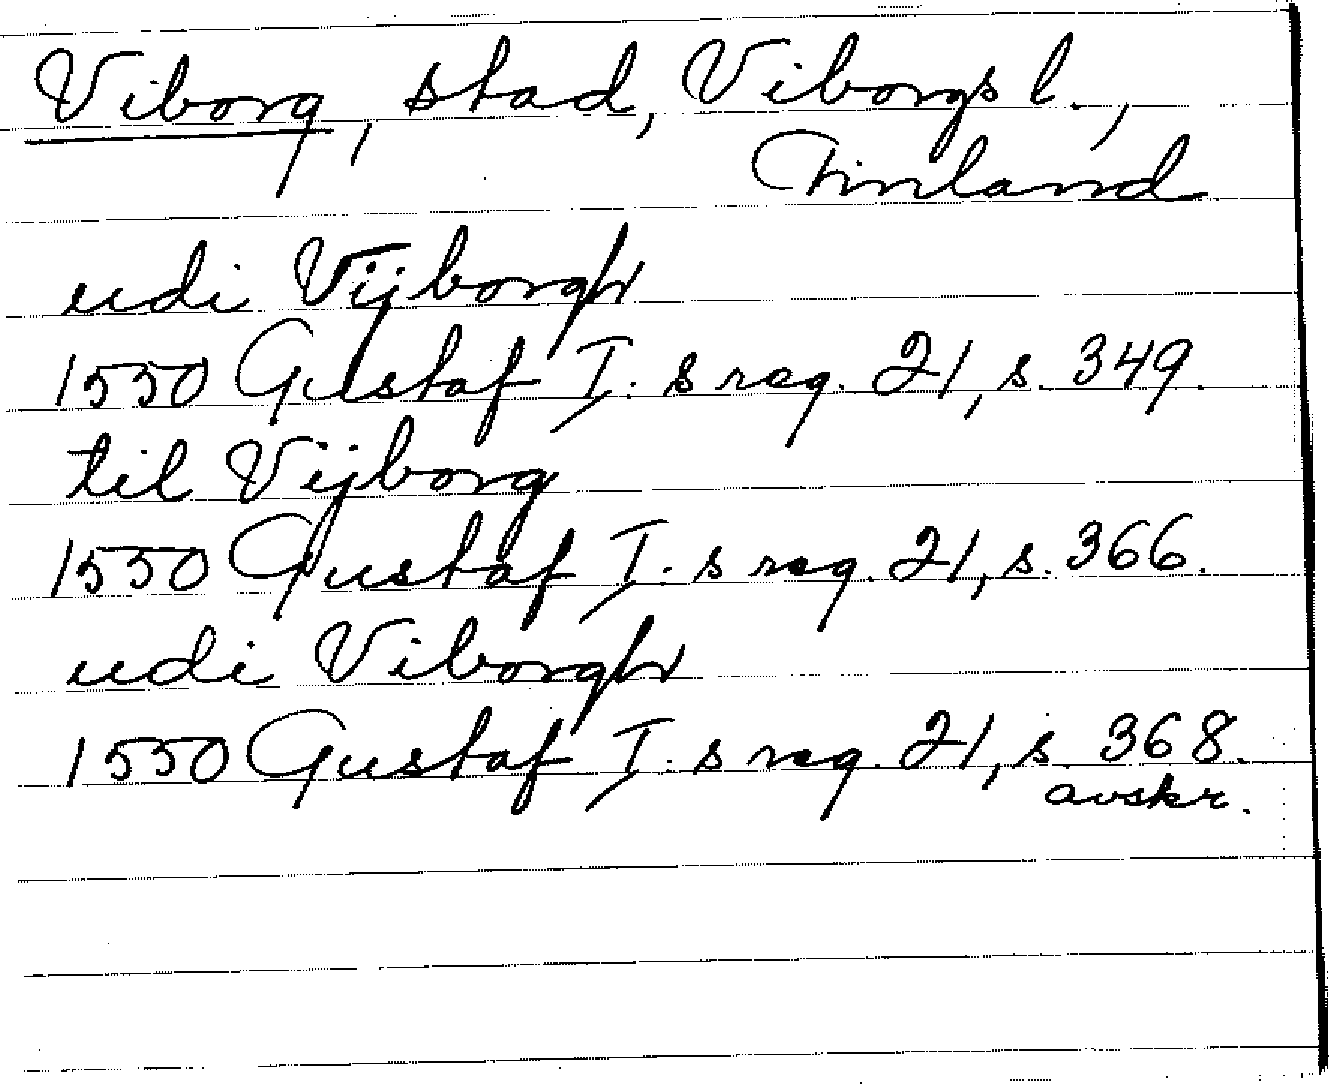 Viborg, stad, Viborgs l.,
Finland
udi Vijborgh
1550 Gustaf I:s reg. 21, s. 349.
til Vijborg
1550 Gustaf I:s reg. 21, s. 366.
udi Viborgh
1550 Gustaf I:s reg. 21, s. 368.
avskr.